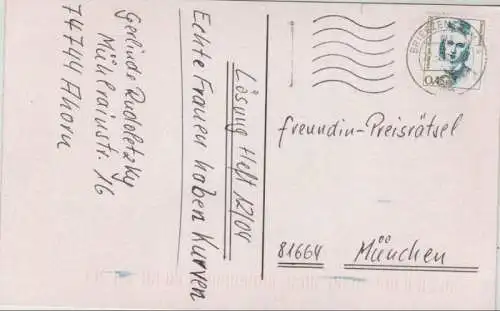 Gerlinde Rudoletzky
Mühlrainstr. 16
74744 Ahorn
Lösung Heft 12/04
Echte Frauen haben Kurven
BRIEFZEN
0,45
freundin-Preisrätsel
81664 München